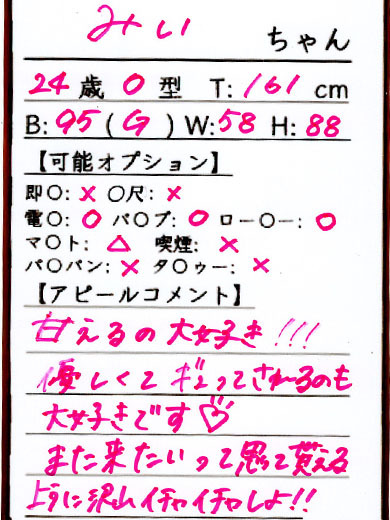 みい ちゃん
24歳 O型 T:161cm
B:95(G)W:58 H:88
【可能オプション】
即〇:× 〇尺:×
電〇:○ バ〇ブ:○ ロー〇ー:○
マ〇ト:△ 喫煙:×
パ〇パン:× タ〇ゥー:×
【アピールコメント】
甘えるの大好き!!!
優しくてギュってされるのも
大好きです♡
また来たいって思って貰える
ように沢山イチャイチャしよ!!